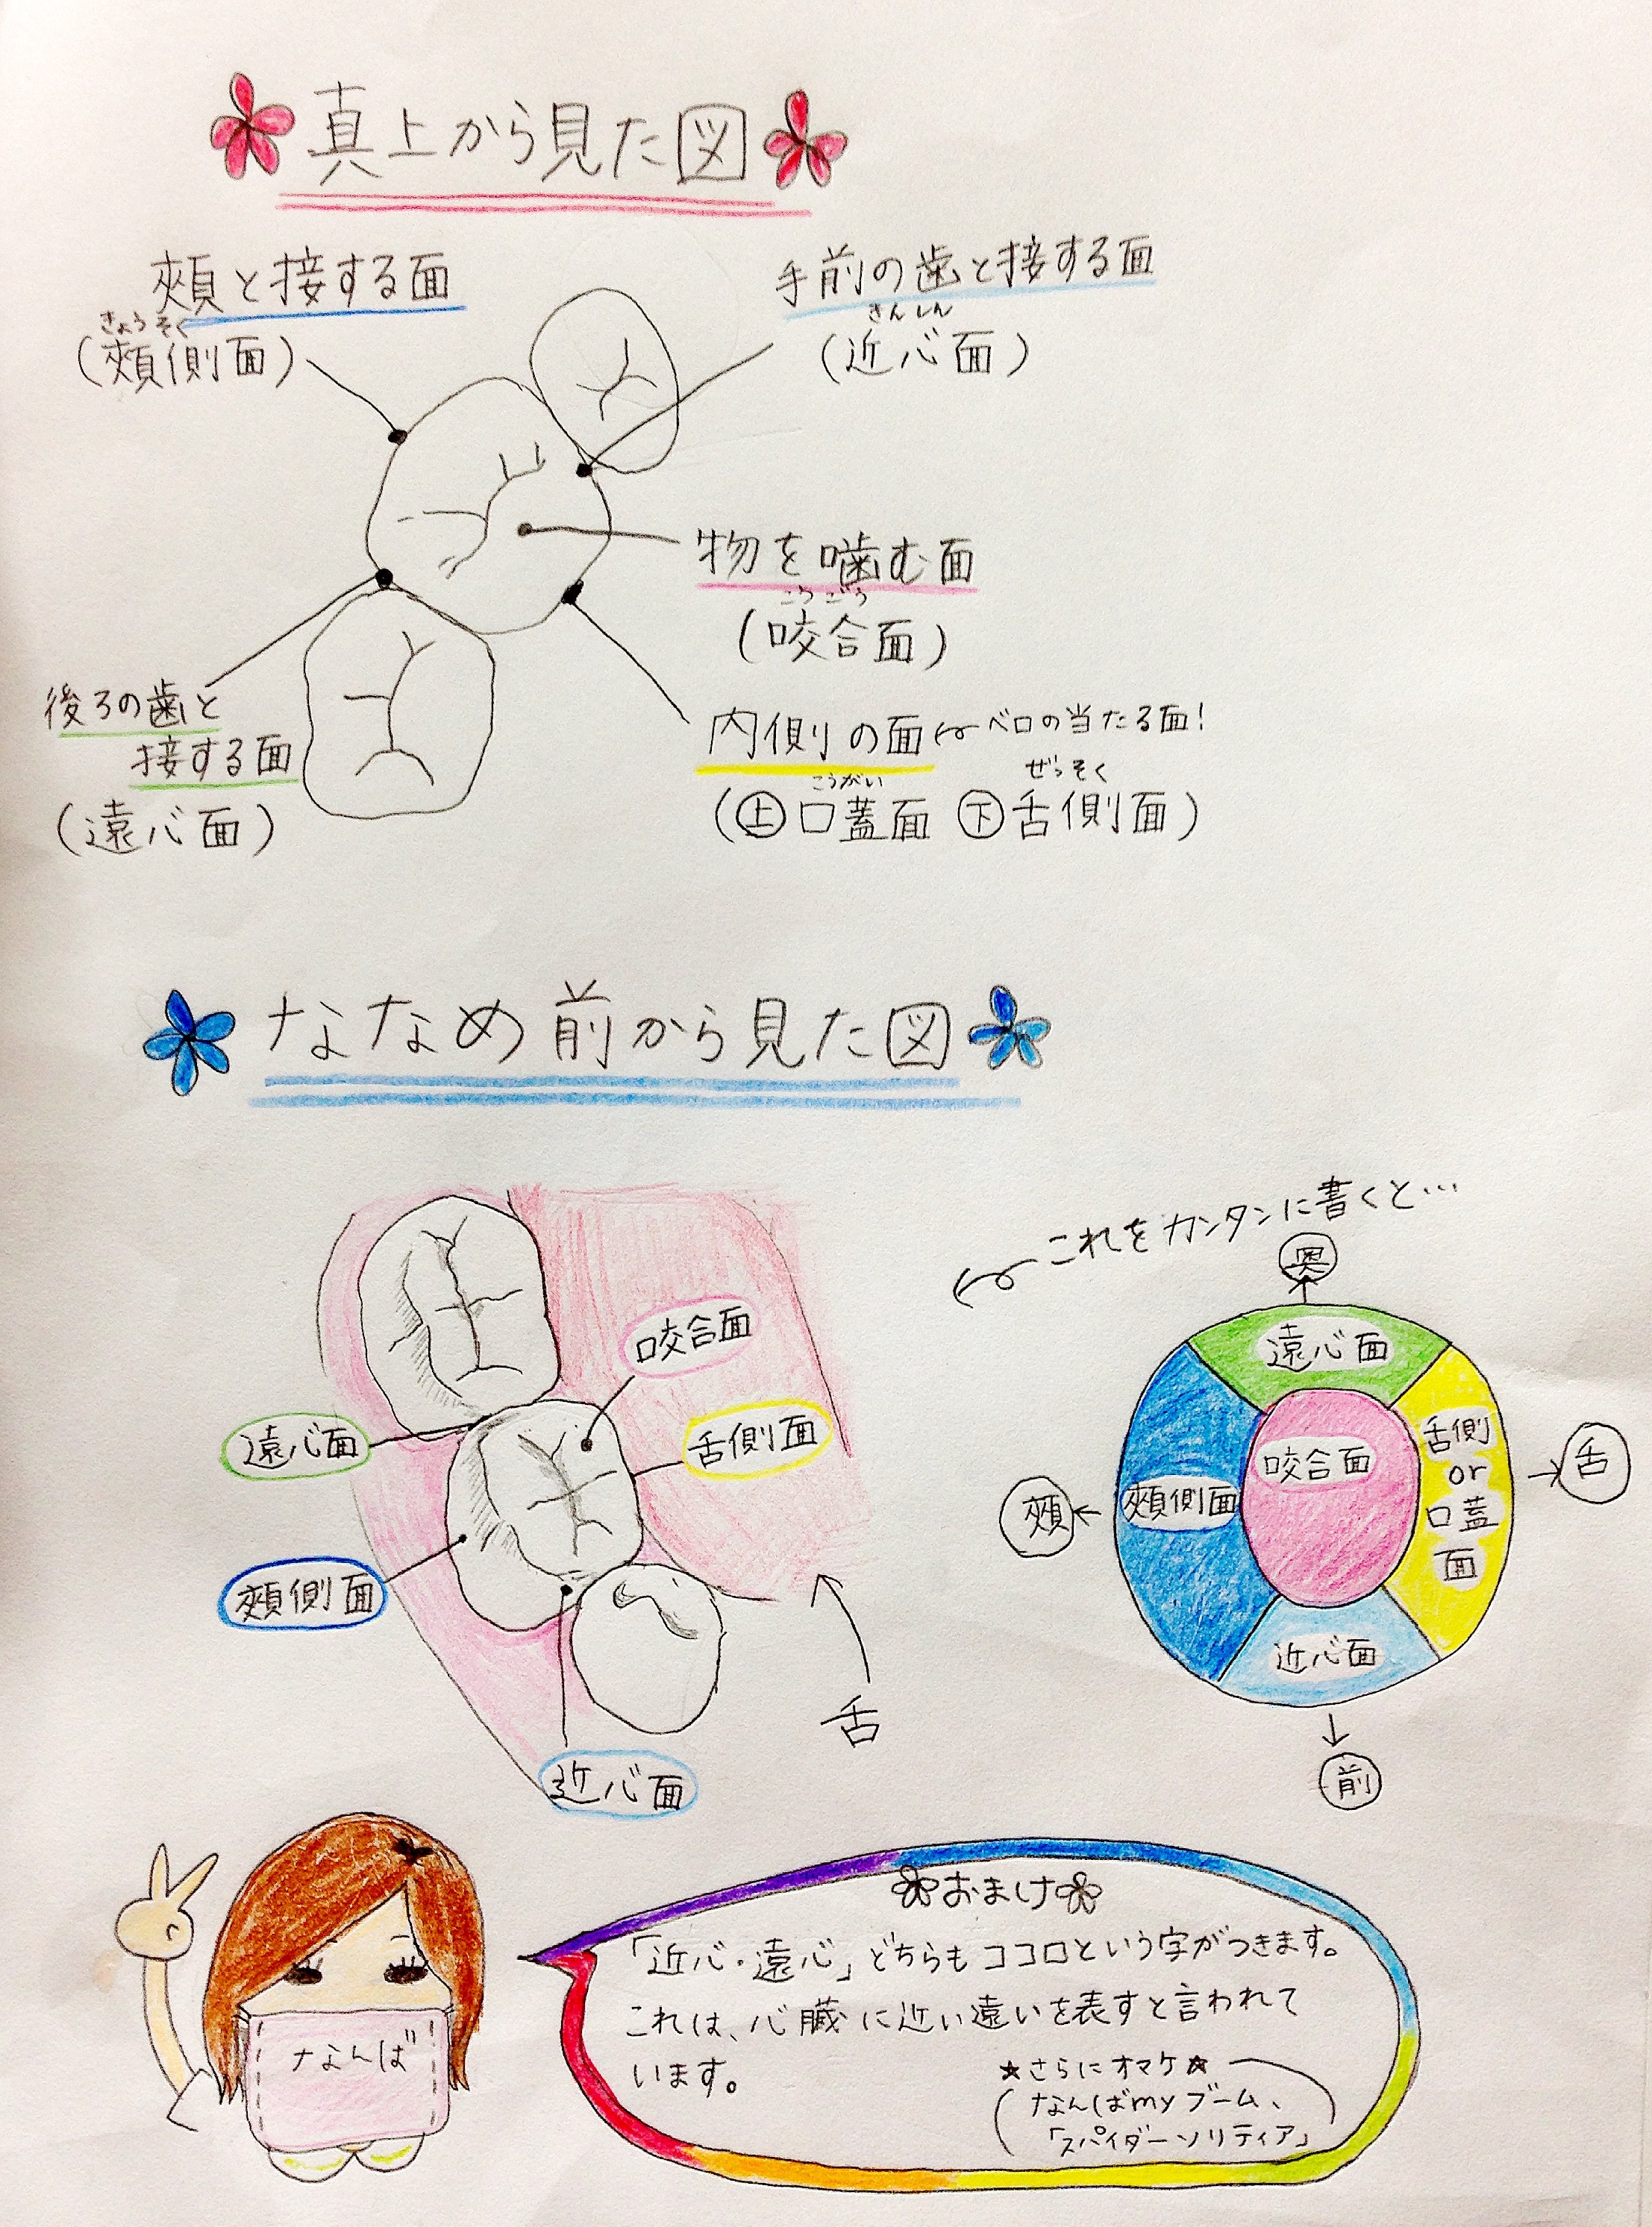 真上から見た図
頬と接する面
きょうそく
(頬側面)
手前の歯と接する面
きんしん
(近心面)
物を噛む面
こうごう
(咬合面)
後ろの歯と
接する面
(遠心面)
内側の面
ベロの当たる面!
こうがい ぜっそく
(上口蓋面 下舌側面)
ななめ前から見た図
これをカンタンに書くと…
咬合面
遠心面
舌側面
頬側面
近心面
舌
奥
遠心面
舌側
or
口蓋
面
咬合面
頬側面
近心面
頬
舌
前
なんば
おまけ
「近心・遠心」どちらもココロという字がつきます。
これは、心臓に近い遠いを表すと言われて
います。
★さらにオマケ★
(なんばmyブーム、
「スパイダーソリティア」)